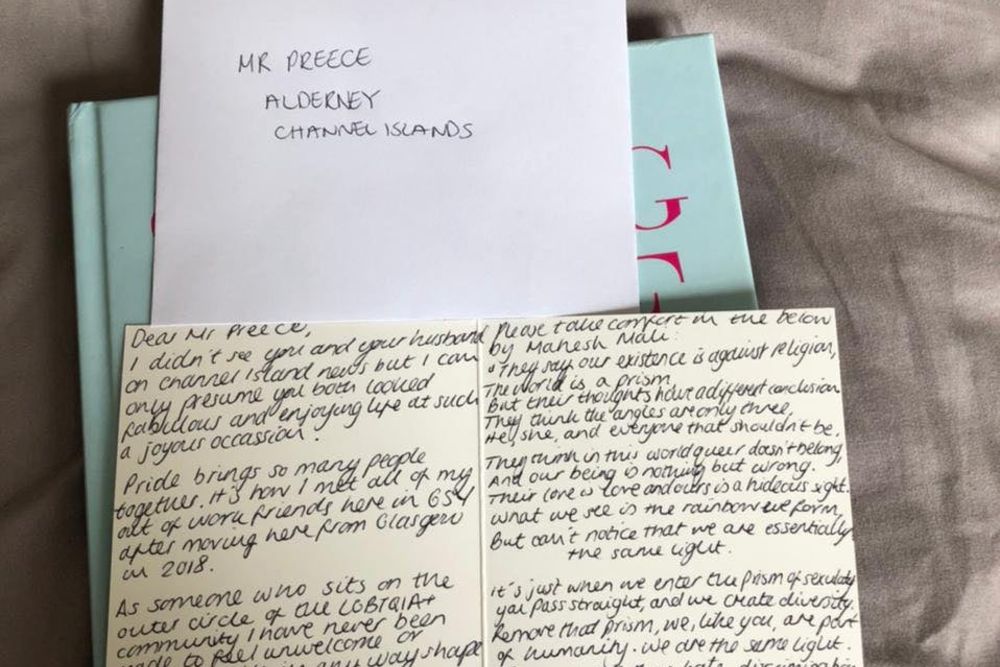 MR PREECE
ALDERNEY
CHANNEL ISLANDS
Dear Mr Preece,
I didn't see you and your husband
on channel Island news but I can
only presume you both looked
fabulous and enjoying life at such
a joyous occassion.
Pride brings so many people
together. It's how I met all of my
out of work friends here in GSY
after moving here from Glasgow
in 2018.
As someone who sits on the
outer circle of the LGBTQIA+
community I have never been
made to feel unwelcome or
in any way shape
Please take comfort in the below
by Mahesh Mali:
"They say our existence is against religion,
The world is a prism
But their thoughts have a different conclusion
They think the angles are only three,
He, she, and everyone that shouldn't be.
They think in this world queer doesn't belong,
And our being is nothing but wrong.
Their love is love and ours is a hideous sight.
What we see is the rainbow we form,
But can't notice that we are essentially
the same light.
It's just when we enter the prism of sexuality
you pass straight, and we create diversity.
Remove that prism, we, like you, are part
of humanity. We are the same light.